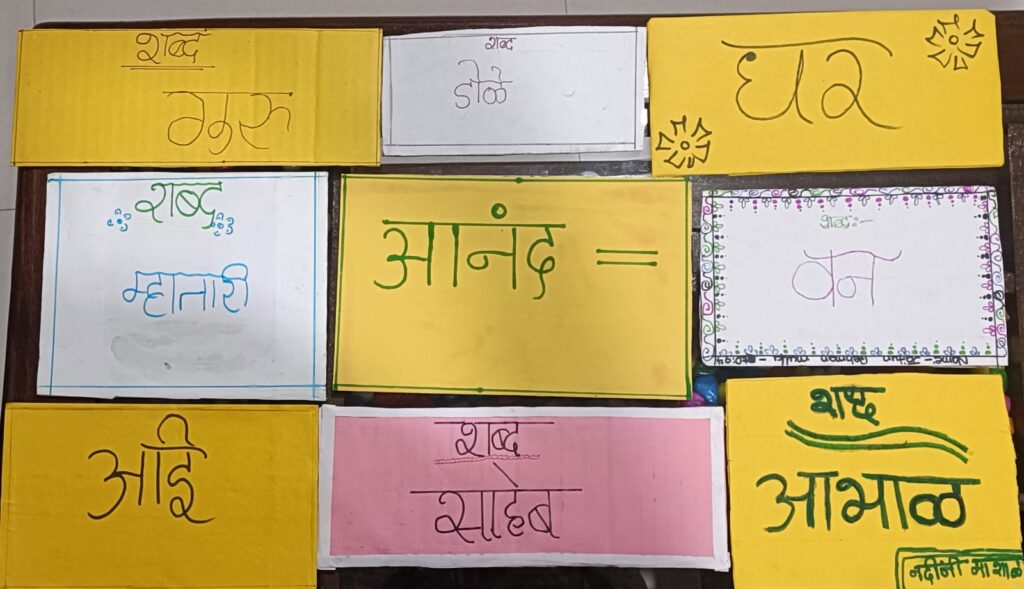 शब्द
गुरु
शब्द
डोळे
घर
शब्द
म्हातारी
आनंद =
शब्द:-
वन
आई
शब्द
साहेब
शब्द
आभाळ